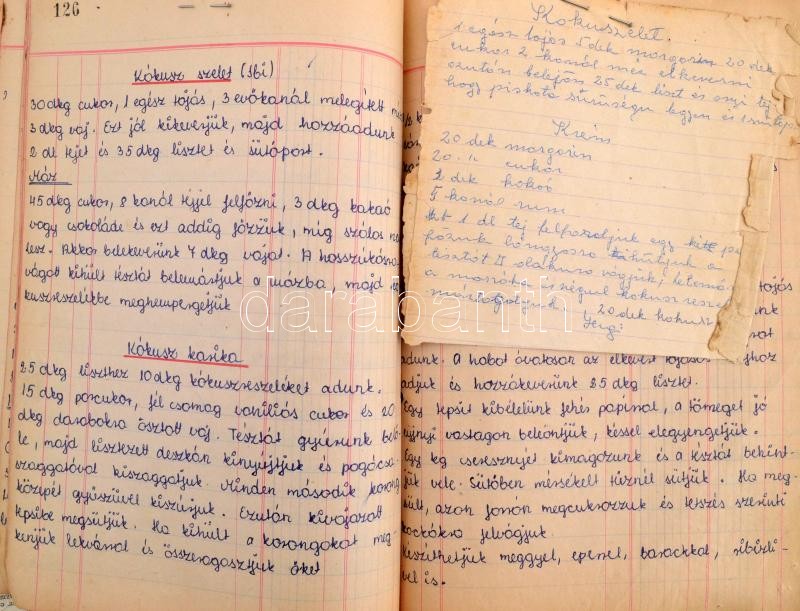 126
Kókusz szelet (Ibi)
30 dkg cukor, 1 egész tojás, 3 evőkanál melegített
3 dkg vaj. Ezt jól kikeverjük, majd hozzáadunk
2 dl tejet és 35 dkg lisztet és sütőport.
Máz
45 dkg cukor, 8 kanál tejjel felfőzni, 3 dkg kakaó
vagy csokoládé és ezt addig főzzük, míg szálas nem
lesz. Akkor belekeverünk 7 dkg vajat. A hosszúkásra
vágott kihült tésztát belemártjuk a mázba, majd
kuszreszelékbe meghempergetjük
Kókusz karika
25 dkg liszthez 10 dkg kókuszreszeléket adunk.
15 dkg porcukor, fél csomag vaniliás cukor és 20
dkg darabokra osztott vaj. Tésztát gyúrunk belő-
le, majd lisztezett deszkán kinyújtjuk és pogácsa-
szaggatóval kiszaggatjuk. Minden második korong
közepét gyűszűvel kiszúrjuk. Ezután kivajazott
tepsibe megsütjük. Ha kihült a korongokat meg-
kenjük lekvárral és összeragasztjuk őket
Kokuszelet.
1 egész tojás 5 dek margorin 20 dek
cukor 2 kanál méz elkeverni
azután belejön 25 dek liszt és anyi tej
hogy piskota sürüségü legyen és 1 sütőpor
Krém
20 dek margorin
20 " cukor
2 dek kakaó
5 kanál rum
1 dl tej felforaljuk egy
főzünk
tésztát II vágjuk,
kokusz reszel
20 dek kokusz
tojás
adunk. A habot óvatosan az elkevert tojásos
adjuk és hozzákeverünk 25 dkg lisztet.
Egy tepsit kibélelünk fehér papírral, a tömeget jó
ujjnyi vastagon beleöntjük, késsel elegyengetjük.
Egy kg cseresznyét kimagozunk és a tésztát behint-
jük vele. Sütőben mérsékelt tűznél sütjük. Ha meg-
kült, azon forrón megcukrozzuk és tetszés szerinti
kockákra felvágjuk.
Készíthetjük meggyel, eperrel, barackkal, ribizli-
vel is.
darabanth